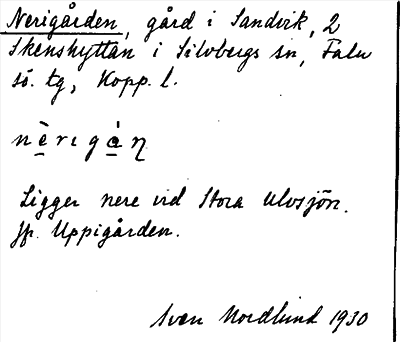 Nerigården, gård i Sandvik, 2
Skenshyttan i Silvbergs sn, Falu
sö. tg, Kopp. l.
nèrıgàn̥
Ligger nere vid Stora Ulvsjön.
Jfr. Uppigården.
Sven Nordlund 1930